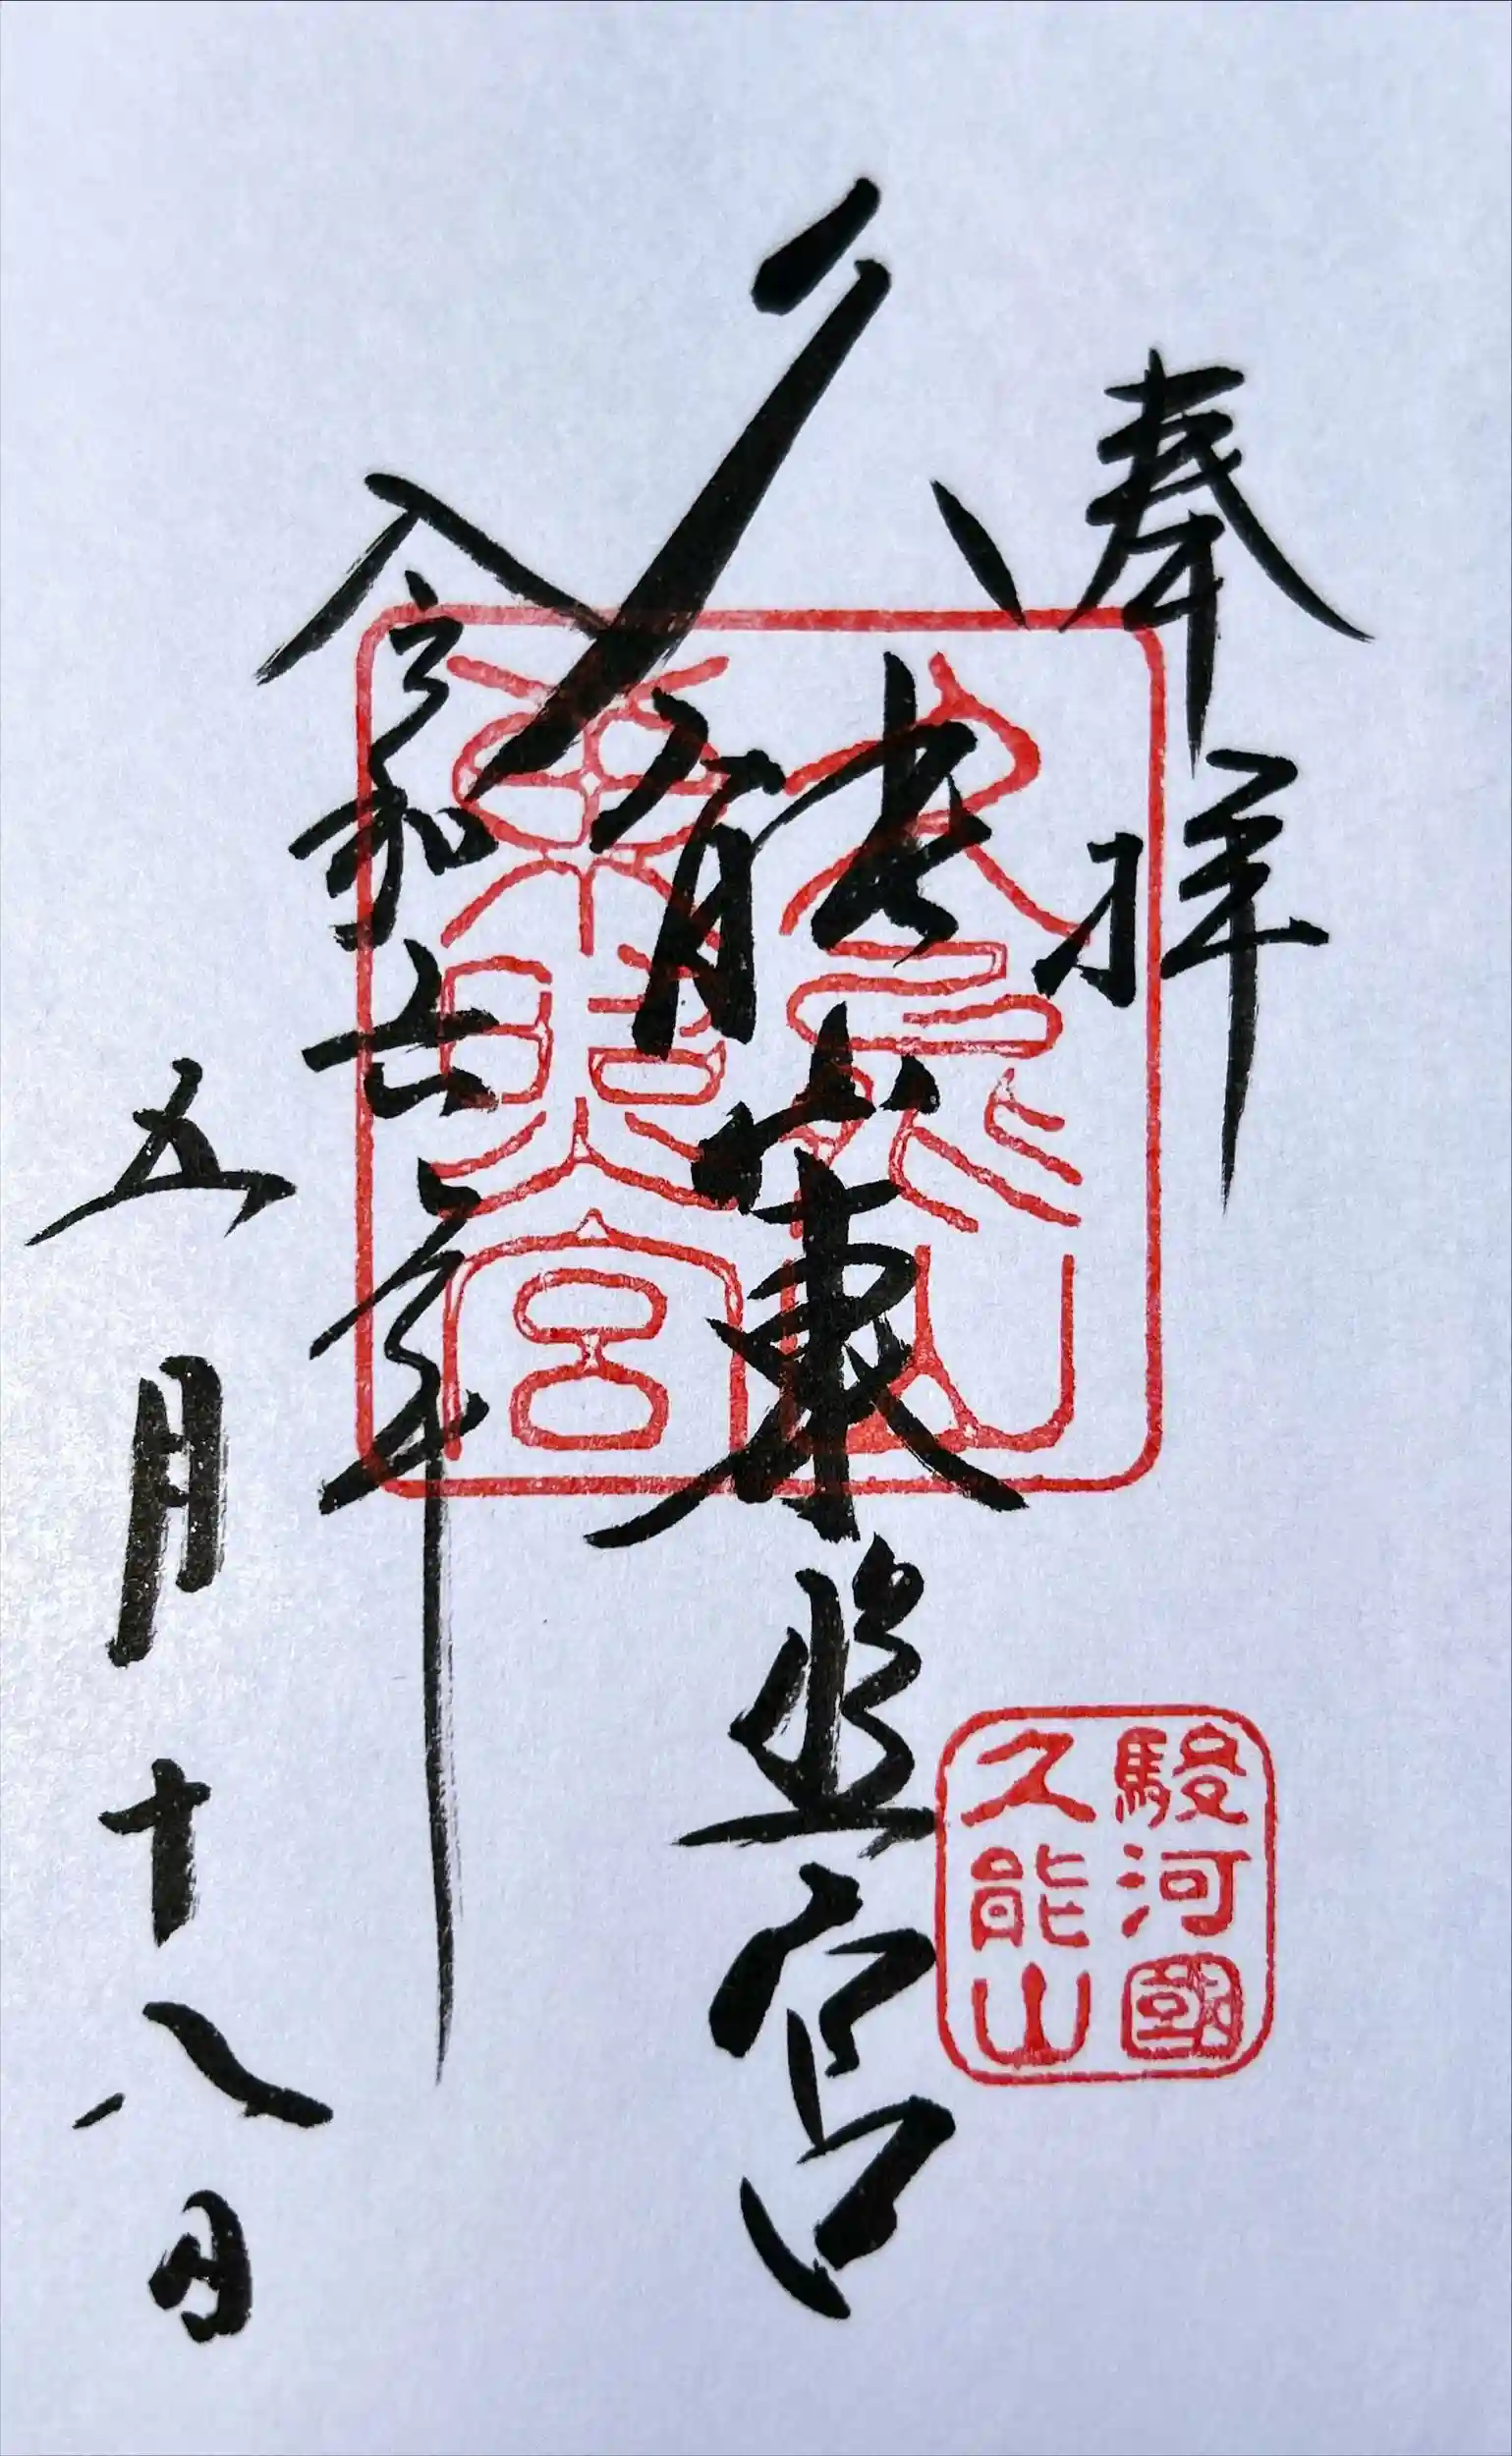 奉拝
駿河國
久能山
久能山東照宮
久能山
東照宮
令和六年
五月十八日